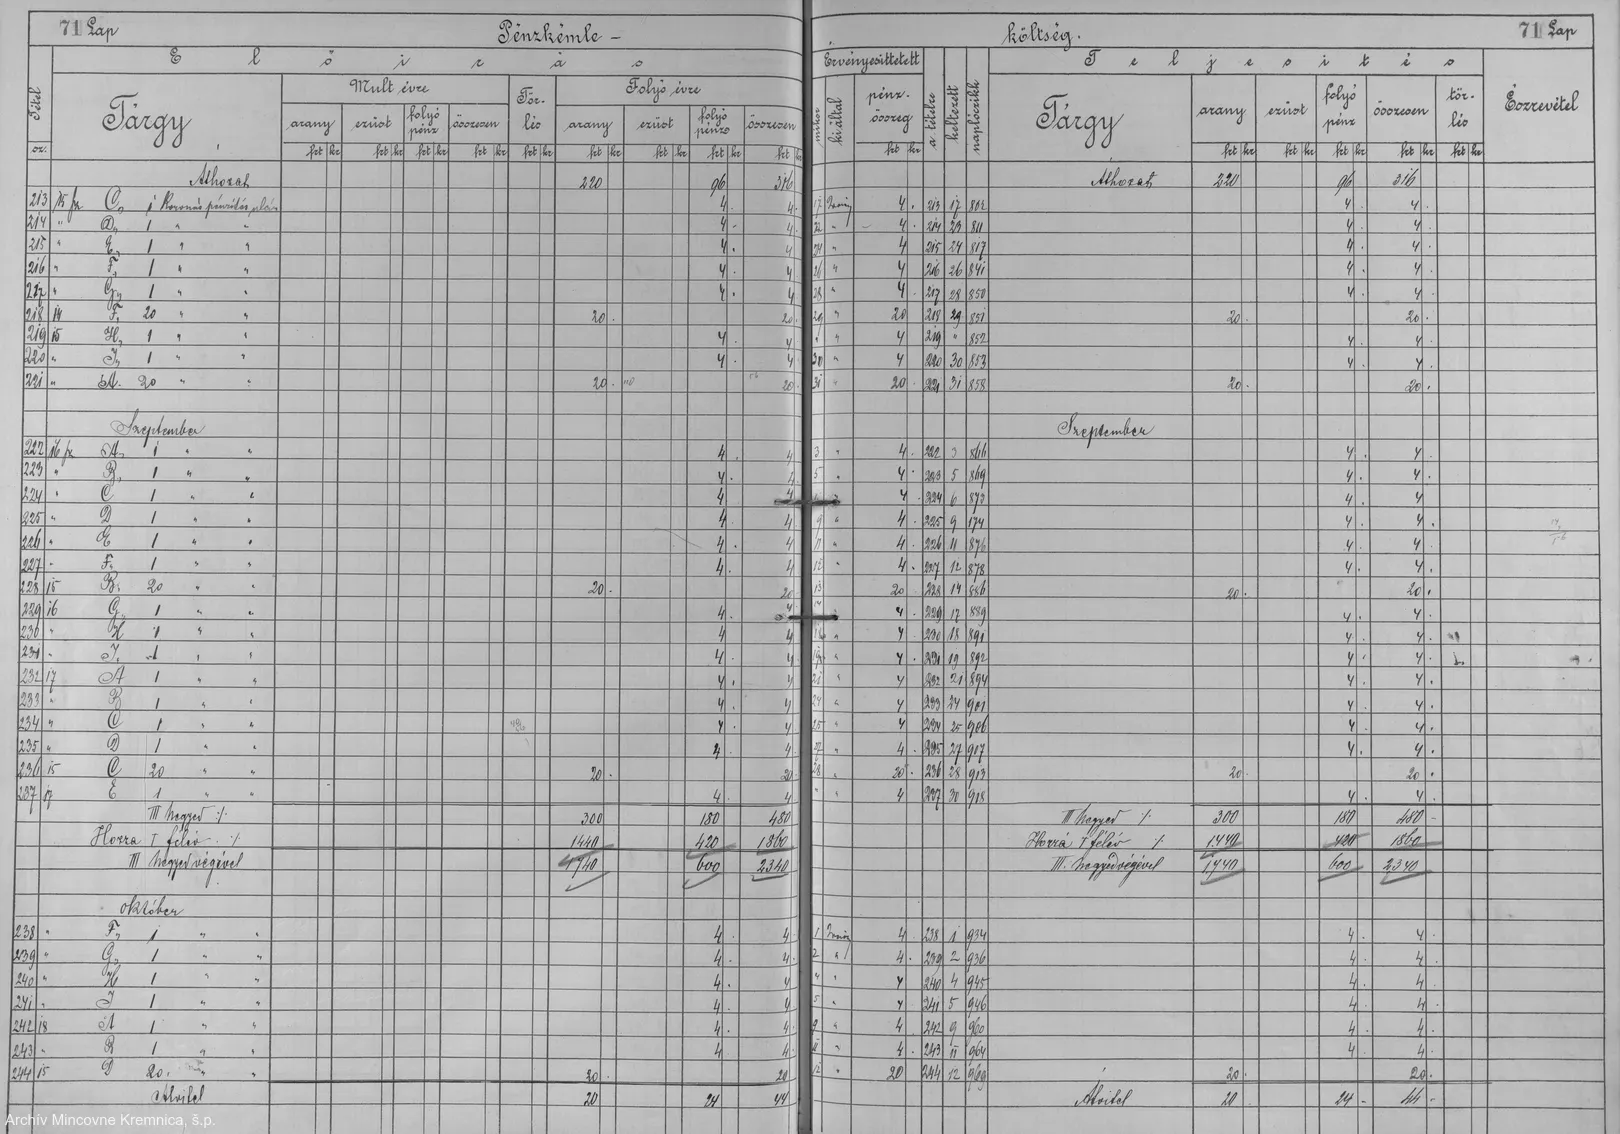 71 Lap Pénzkémle - költség. 71 Lap
Előirás
Tétel sz. Tárgy Mult évre Tör- lés Folyó évre
arany ezüst folyó pénz összesen arany ezüst folyó pénz összesen
frt kr frt kr frt kr frt kr frt kr frt kr frt kr frt kr frt kr
Áthozat 220 96 316
213 15 fz C, 1 Koronás pénzítés után 4 4
214 " D, 1 " " 4 4
215 " E, 1 " " 4 4
216 " F, 1 " " 4 4
217 " G, 1 " " 4 4
218 14 F, 20 " " 20 20
219 15 H, 1 " " 4 4
220 " I, 1 " " 4 4
221 " A. 20 " " 20 20
Szeptember
222 16 fz A, 1 " " 4 4
223 " B, 1 " " 4 4
224 " C 1 " " 4 4
225 " D 1 " " 4 4
226 " E 1 " " 4 4
227 " F, 1 " " 4 4
228 15 B, 20 " " 20 20
229 16 G, 1 " " 4 4
230 " H 1 " " 4 4
231 " I, 1 " " 4 4
232 17 A 1 " " 4 4
233 " B 1 " " 4 4
234 " C 1 " " 4 4
235 " D 1 " " 4 4
236 15 C 20 " " 20 20
237 17 E 1 " " 4 4
III negyed ./. 300 180 480
Hozza I félév ./. 1440 420 1860
III negyed végével 1740 600 2340
október
238 " F, 1 " " 4 4
239 " G, 1 " " 4 4
240 " H 1 " " 4 4
241 " I 1 " " 4 4
242 18 A 1 " " 4 4
243 " B 1 " " 4 4
244 15 D 20 " " 20 20
Átvitel 20 24 44
Érvényesittetett Teljesités
mikor ki által pénz- összeg a tételre keltezett naplóczikk Tárgy arany ezüst folyó pénz összesen tör- lés Észrevétel
frt kr frt kr frt kr frt kr frt kr frt kr
Áthozat 220 96 316
17 4 213 17 802 4 4
22 " 4 214 23 811 4 4
24 " 4 215 24 817 4 4
26 " 4 216 26 841 4 4
28 " 4 217 28 850 4 4
29 " 20 218 29 851 20 20
" " 4 219 " 852 4 4
30 " 4 220 30 853 4 4
31 " 20 221 31 858 20 20
Szeptember
3 " 4 222 3 866 4 4
5 " 4 223 5 869 4 4
4 224 6 873 4 4
9 " 4 225 9 174 4 4
11 " 4 226 11 876 4 4
12 " 4 227 12 878 4 4
13 20 228 14 886 20 20
4 229 17 889 4 4
" 4 230 18 891 4 4
19 " 4 231 19 892 4 4
21 " 4 232 21 894 4 4
24 " 4 233 24 901 4 4
25 " 4 234 25 906 4 4
27 " 4 235 27 907 4 4
28 " 20 236 28 913 20 20
" " 4 237 30 918 4 4
III negyed ./. 300 180 480
Hozzá I félév ./. 1440 420 1860
III. negyedvégével 1740 600 2340
1 4 238 1 934 4 4
2 " 4 239 2 936 4 4
" " 4 240 4 945 4 4
5 " 4 241 5 946 4 4
9 " 4 242 9 960 4 4
11 " 4 243 11 964 4 4
12 " 20 244 12 969 20 20
Átvitel 20 24 44
Archív Mincovne Kremnica, š.p.